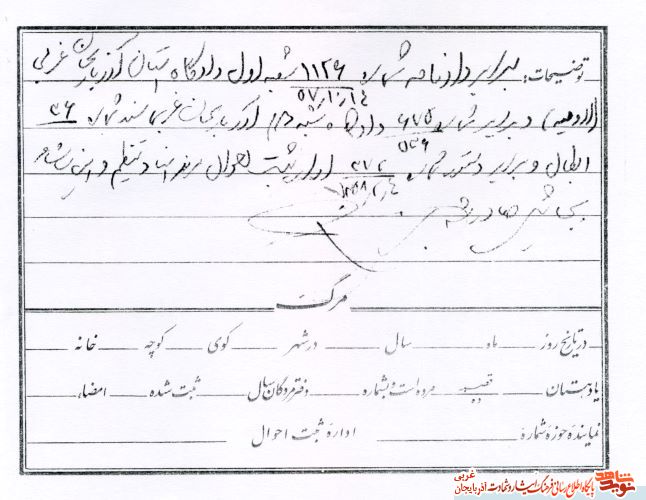 توضیحات: برابر دادنامه شماره ۱۱۲۶ شعبه اول دادگاه استان آذربایجان غربی
(ارومیه) و برابر شماره ۶۷۵ دادگاه شعبه آذربایجان غربی سند شماره ۳۶
ابطال و برابر دستور شماره ۳۷۲ اداره ثبت احوال سند تنظیم و این
بجایش صادر شد
مرگ
در تاریخ روز ماه سال در شهر کوی کوچه خانه
یا دبستان قصبه ده مرده است و بشماره دفتر مردگان سال ثبت شده امضاء
نماینده حوزه شماره اداره ثبت احوال
نوید شاهد
پایگاه اطلاع رسانی فرهنگ ایثار و شهادت آذربایجان غربی